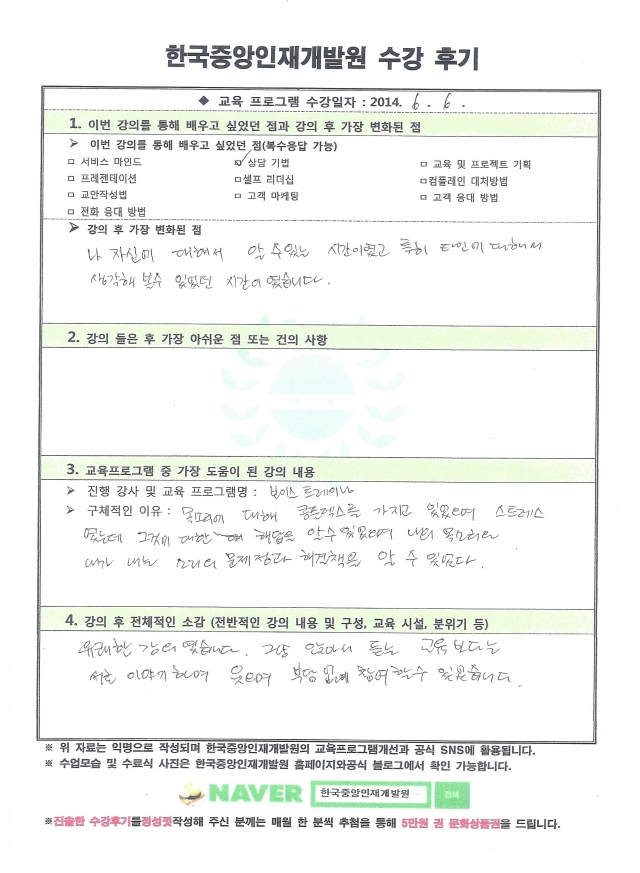 한국중앙인재개발원 수강 후기
◆ 교육 프로그램 수강일자 : 2014. 6. 6.
1. 이번 강의를 통해 배우고 싶었던 점과 강의 후 가장 변화된 점
➤ 이번 강의를 통해 배우고 싶었던 점(복수응답 가능)
□ 서비스 마인드 ☑ 상담 기법 □ 교육 및 프로젝트 기획
□ 프레젠테이션 □ 셀프 리더십 □ 컴플레인 대처방법
□ 교안작성법 □ 고객 마케팅 □ 고객 응대 방법
□ 전화 응대 방법
➤ 강의 후 가장 변화된 점
나 자신에 대해서 알 수있는 시간이였고 특히 타인에 대해서
생각해 볼수 있었던 시간이 였습니다.
2. 강의 들은 후 가장 아쉬운 점 또는 건의 사항
3. 교육프로그램 중 가장 도움이 된 강의 내용
➤ 진행 강사 및 교육 프로그램명 : 보이스 트레이닝
➤ 구체적인 이유 : 목소리에 대해 콤플렉스를 가지고 있었으며 스트레스
였는데 그것에 대한 해답을 알수있었으며 나의 목소리와
내가 내는 소리의 문제점과 해결책을 알 수 있었다.
4. 강의 후 전체적인 소감 (전반적인 강의 내용 및 구성, 교육 시설, 분위기 등)
유쾌한 강의 였습니다. 그냥 앉아서 듣는 교육보다는
서로 이야기하며 웃으며 부담없이 참여할수 있었습니다.
※ 위 자료는 익명으로 작성되며 한국중앙인재개발원의 교육프로그램개선과 공식 SNS에 활용됩니다.
※ 수업모습 및 수료식 사진은 한국중앙인재개발원 홈페이지와공식 블로그에서 확인 가능합니다.
NAVER 한국중앙인재개발원 검색
※진솔한 수강후기를정성껏작성해 주신 분께는 매월 한 분씩 추첨을 통해 5만원 권 문화상품권을 드립니다.